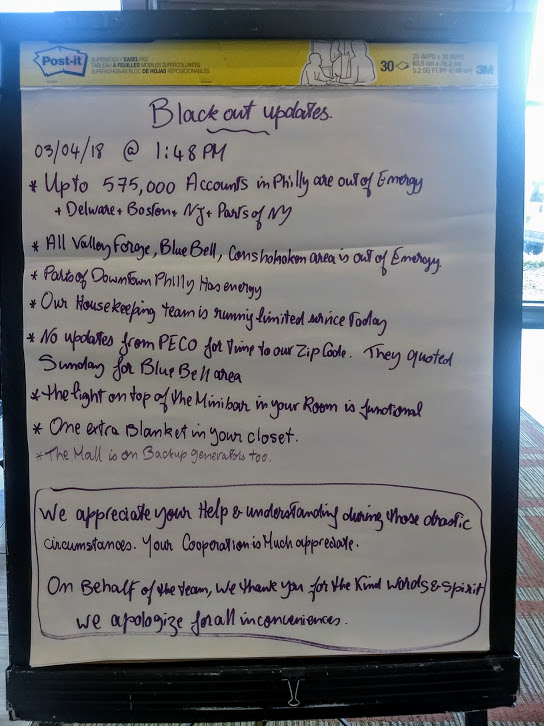 Post-it
SUPERSTICKY EASEL PAD
TABLEAU À FEUILLES MOBILES SUPERCOLLANTS
SUPERADHESIVAS BLOC DE HOJAS REPOSICIONABLES
30
25 IN/PO x 30 IN/PO
63.5 cm x 76.2 cm
5.2 SQ FT/PI²
3M
Blackout updates.
03/04/18 @ 1:48 PM
* Up to 575,000 Accounts in Philly are out of Energy
+ Delware + Boston + NJ + Parts of NY
* All Valley Forge, Blue Bell, Conshohoken area is out of Emergy
* Parts of Downtown Philly Has energy
* Our Housekeeping team is running limited service Today
* No updates from PECO for time to our Zip Code. They quoted
Sunday for Blue Bell area
* the light on top of the Minibar in your Room is functional
* One extra Blanket in your closet.
* The Mall is on Backup generators too.
We appreciate your Help & understanding during those drastic
circumstances. Your Cooperation is Much appreciate.
On Behalf of the team, We thank you for the Kind Words & Spirit
We apologize for all inconveniences.